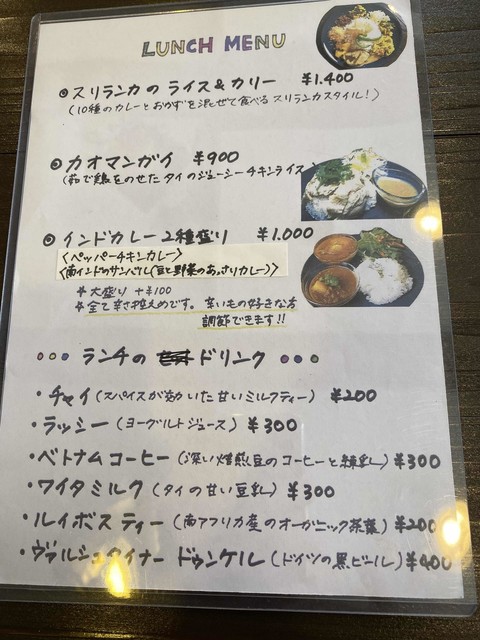 LUNCH MENU
スリランカの ライス&カリー ¥1.400
(10種のカレーとおかずを混ぜて食べる スリランカスタイル!)
カオマンガイ ¥900
(茹で鶏をのせた タイのジューシーチキンライス)
インドカレー2種盛り ¥1.000
〈ペッパーチキンカレー〉
〈南インドのサンバル(豆と野菜のあっさりカレー)〉
* 大盛り +¥100
* 全て辛さ控えめです。辛いもの好きな方
調節できます!!
ランチの ドリンク
・チャイ(スパイスが効いた甘いミルクティー) ¥200
・ラッシー(ヨーグルトジュース) ¥300
・ベトナムコーヒー(深い焙煎豆のコーヒーと練乳) ¥300
・ワイタミルク(タイの甘い豆乳) ¥300
・ルイボスティー(南アフリカ産のオーガニック茶葉) ¥200
・ヴァルシュタイナー ドゥンケル(ドイツの黒ビール) ¥400